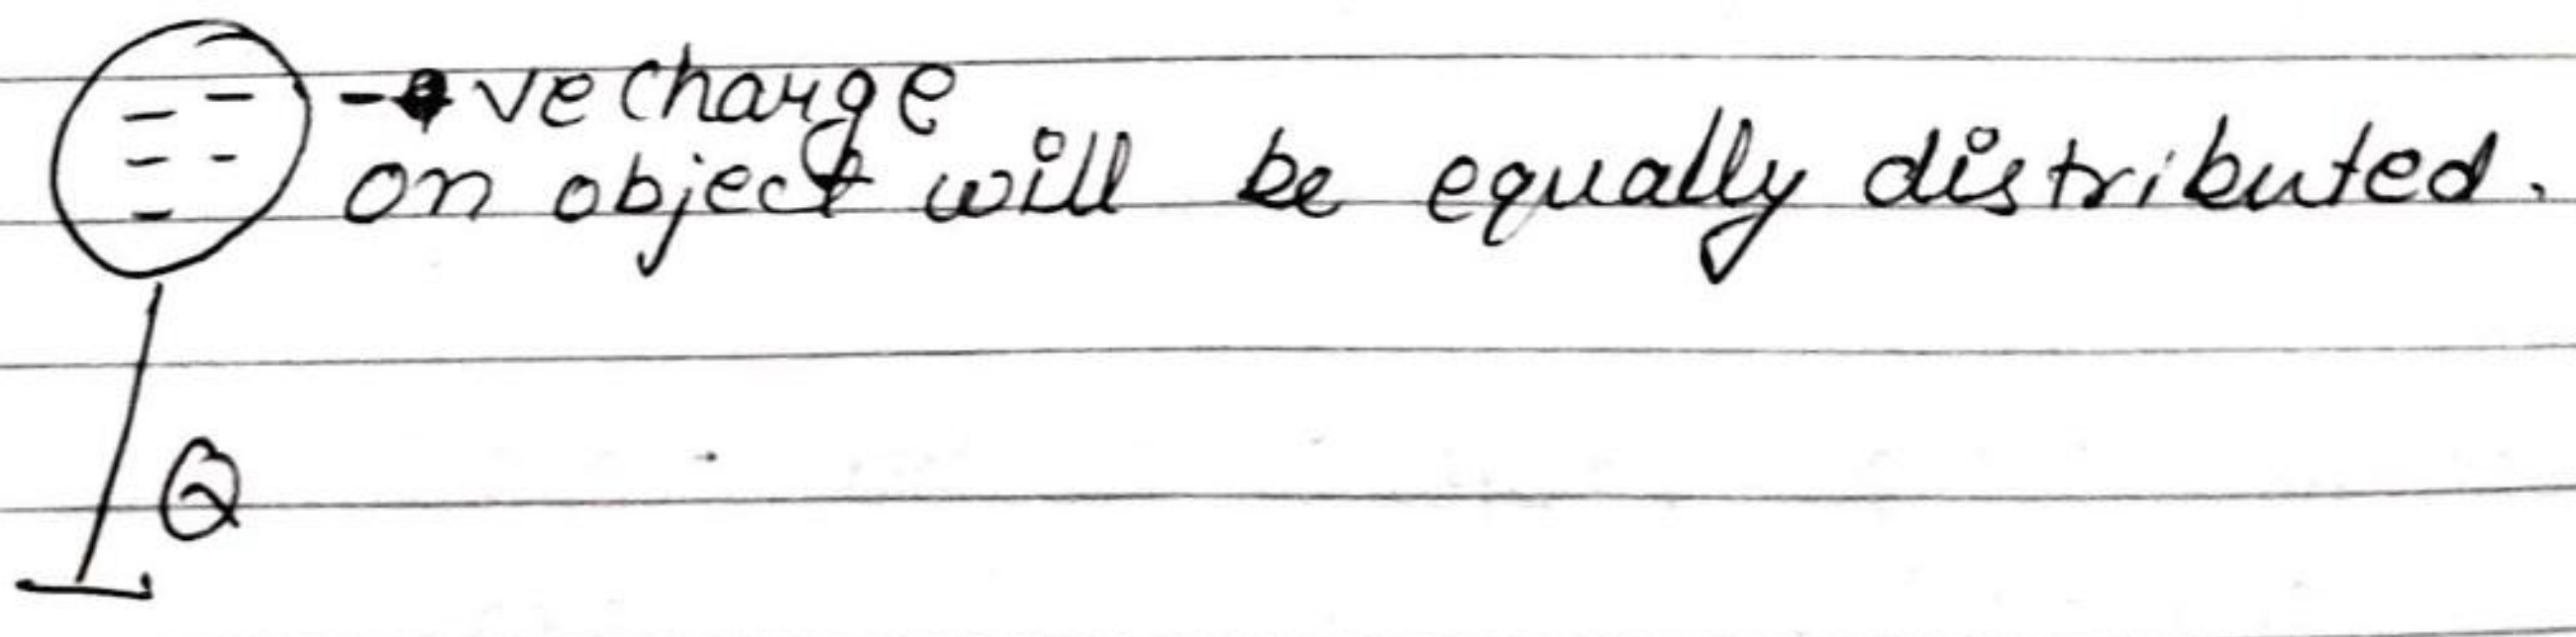 -ve charge
on object will be equally distributed.
Q